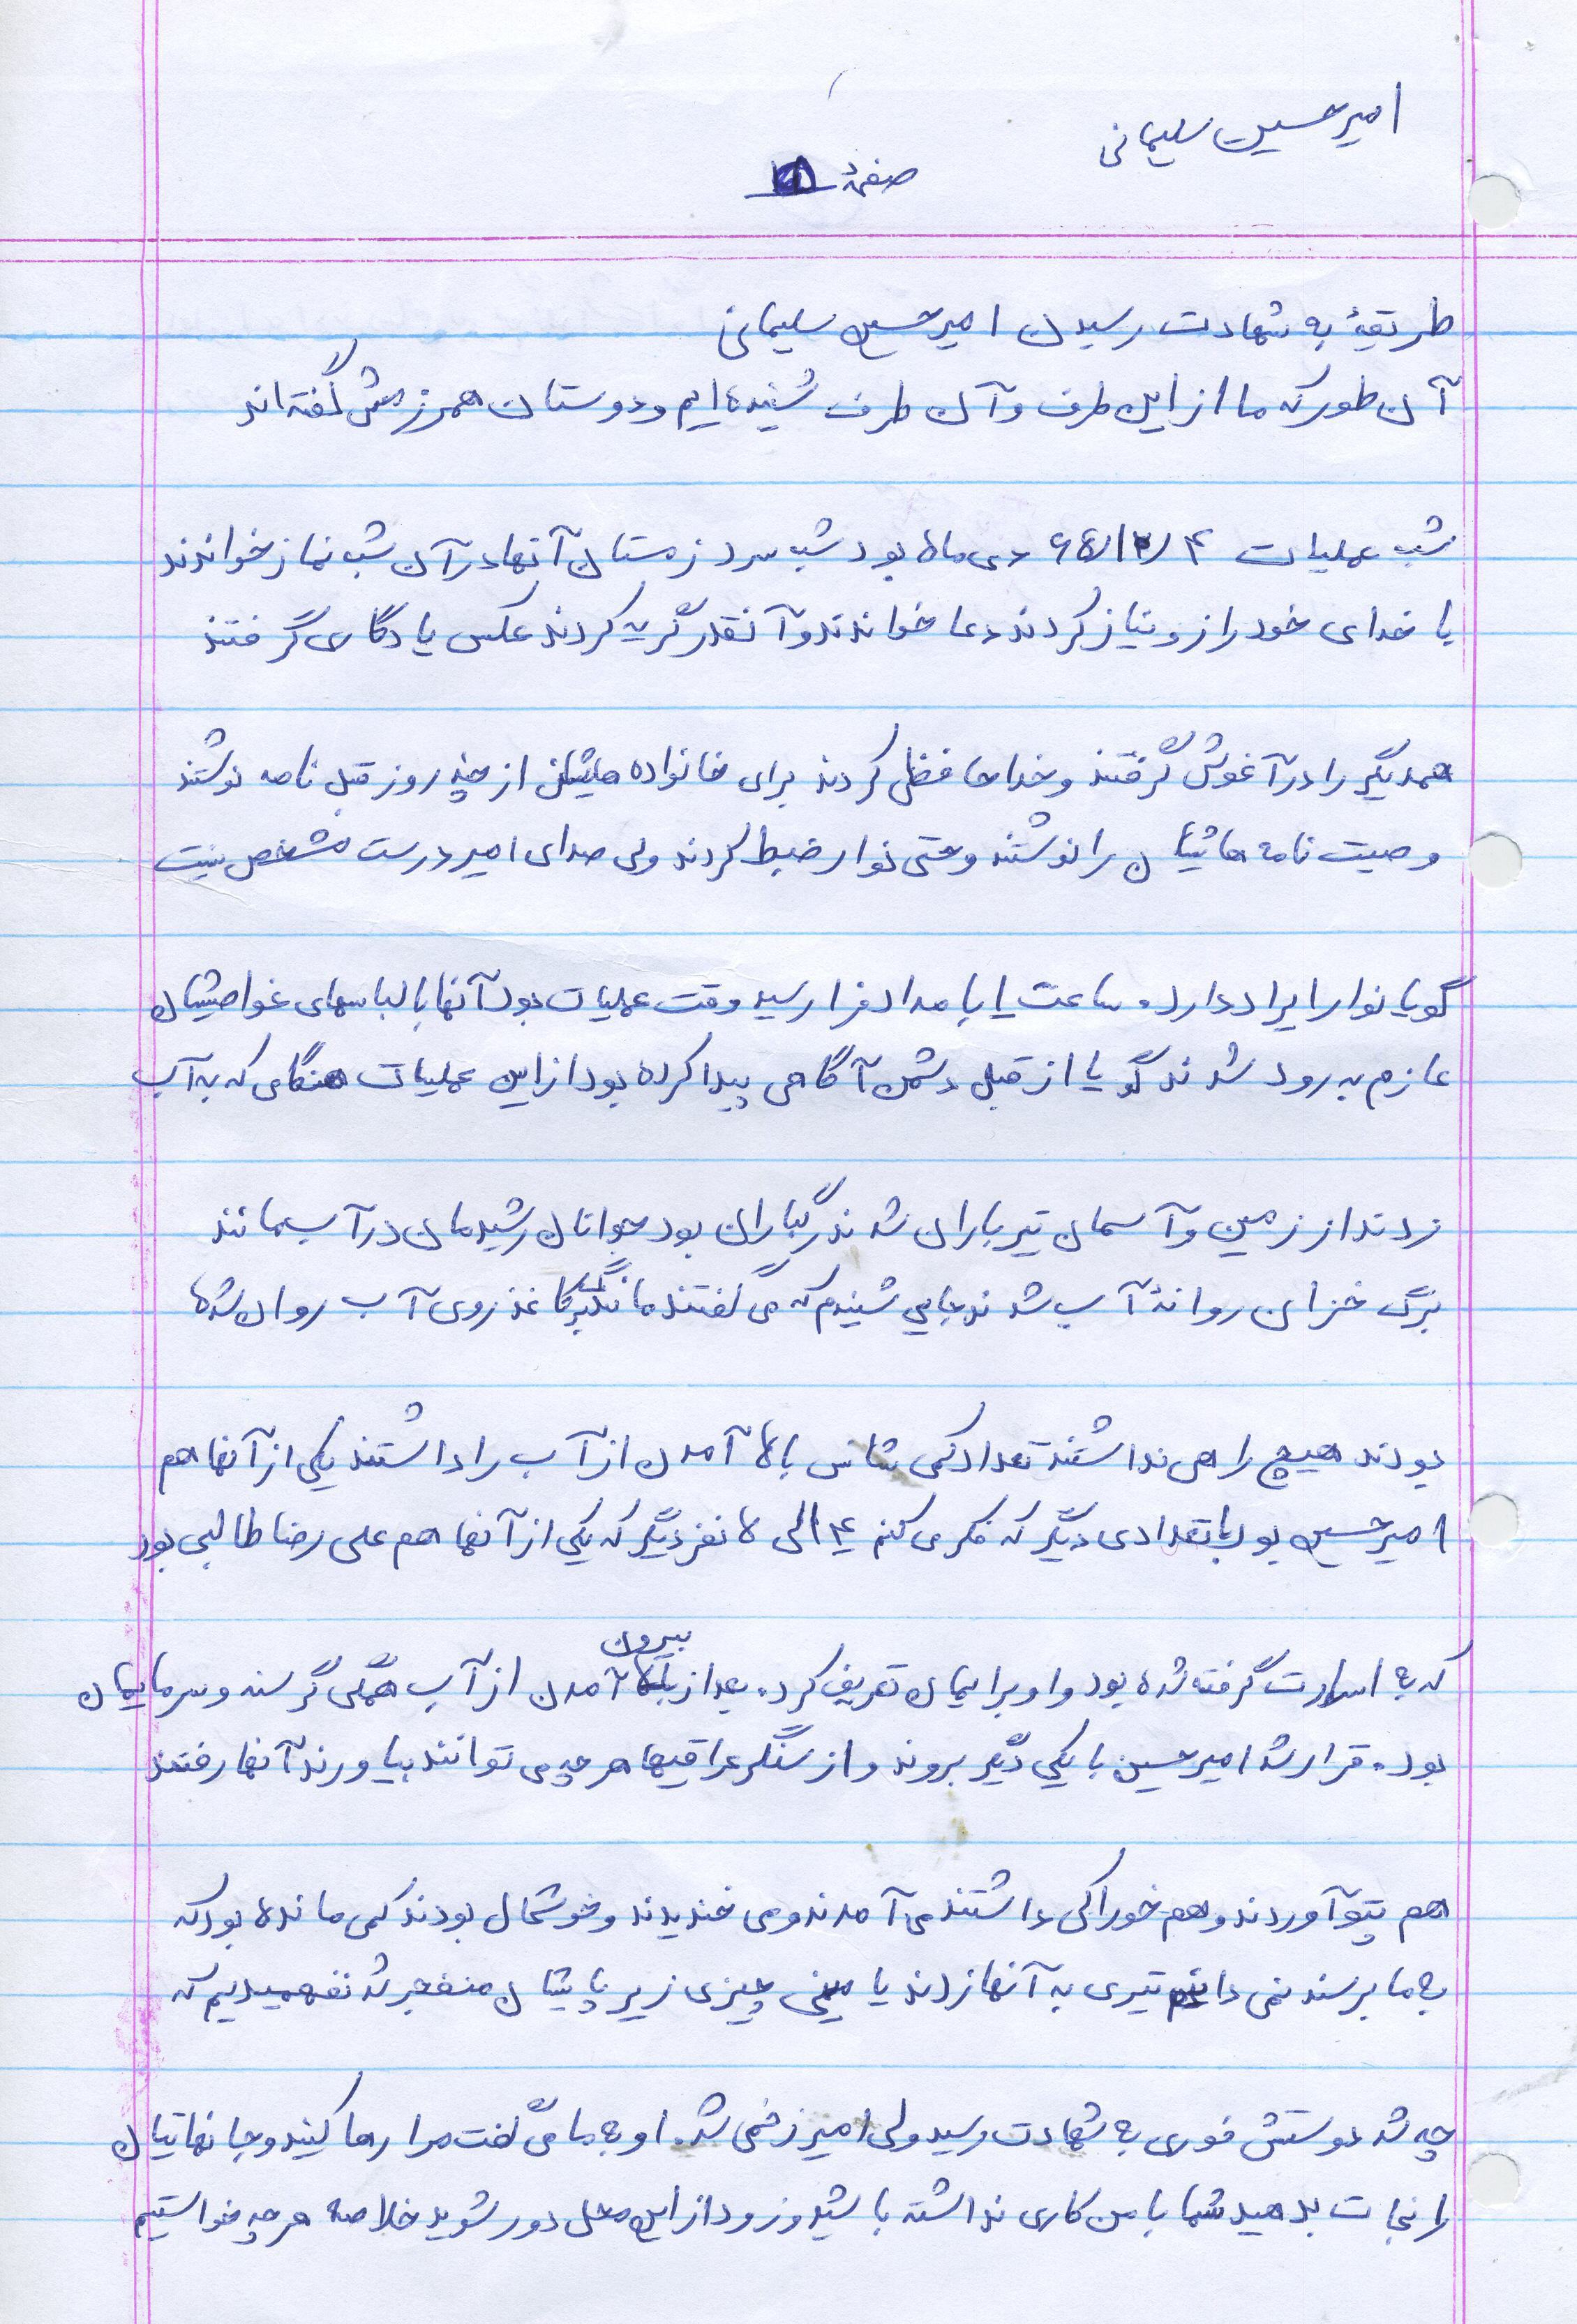 امیرحسین سلیمانی
صفحهٔ
طریقهٔ به شهادت رسیدن امیرحسین سلیمانی
آن طور که ما از این طرف و آن طرف شنیده‌ایم و دوستان همرزمش گفته‌اند
شب عملیات دی ماه بود شب سرد زمستان آنها در آن شب نماز خواندند
با خدای خود راز و نیاز کردند دعا خواندند و آنقدر گریه کردند عکس یادگاری گرفتند
همدیگر را در آغوش گرفتند و خداحافظی کردند برای خانواده هایشان از چند روز قبل نامه نوشتند
وصیت نامه هاشیان را نوشتند و حتی نوار ضبط کردند ولی صدای امیر درست مشخص نیست
گویا نوار ایراد دارد. ساعت ۱ بامداد فرا رسید وقت عملیات بود آنها با لباسهای غواصیشان
عازم به رود شدند گویا از قبل دشمن آگاهی پیدا کرده بود از این عملیات هنگامی که به آب
زدند از زمین و آسمان تیرباران شدند رگباران بود جوانان رشیدمان در آب مانند
برگ خزان روانهٔ آب شدند جایی شنیدم که می گفتند مانند کاغذ روی آب روان شده
بودند هیچ راهی نداشتند تعداد کمی شانس بالا آمدن از آب را داشتند یکی از آنها هم
امیرحسین بود با تعدادی دیگر که فکر می کنم ۴ الی ۵ نفر دیگر که یکی از آنها هم علی رضا طالبی بود
که به اسارت گرفته شده بود و او برایمان تعریف کرد. بعد از بیرون آمدن از آب همگی گرسنه و سرمایمان
بود. قرار شد امیرحسین با یکی دیگر بروند و از سنگر عراقیها هر چه می توانند بیاورند آنها رفتند
هم پتو آوردند و هم خوراکی داشتند می آمدند و می خندیدند و خوشحال بودند کمی مانده بود که
به ما برسند نمی دانیم تیری به آنها زدند یا مینی چیزی زیر پایشان منفجر شد نفهمیدیم که
چه شد دوستش فوری به شهادت رسید ولی امیر زخمی شد. او به ما می گفت مرا رها کنید و جانهایتان
را نجات بدهید شما با من کاری نداشته باشید و زود از این محل دور شوید خلاصه هر چه خواستیم